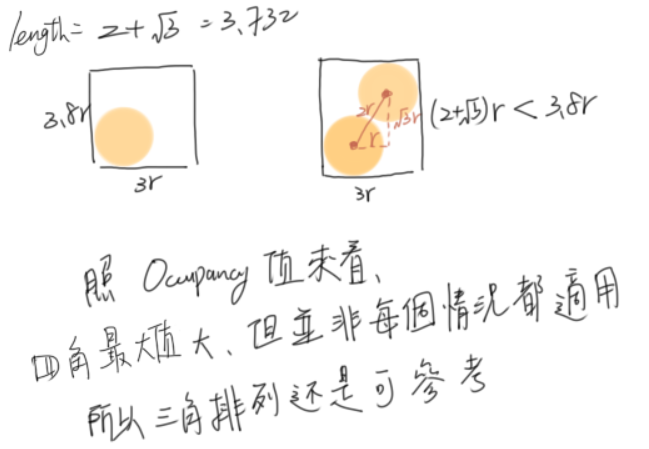 length = 2+√3 = 3.732
3.8r
3r
2r
√3r
r
(2+√3)r < 3.8r
3r
照 Occupancy 值來看、
四角最大值大、但並非每個情況都適用
所以三角排列還是可參考